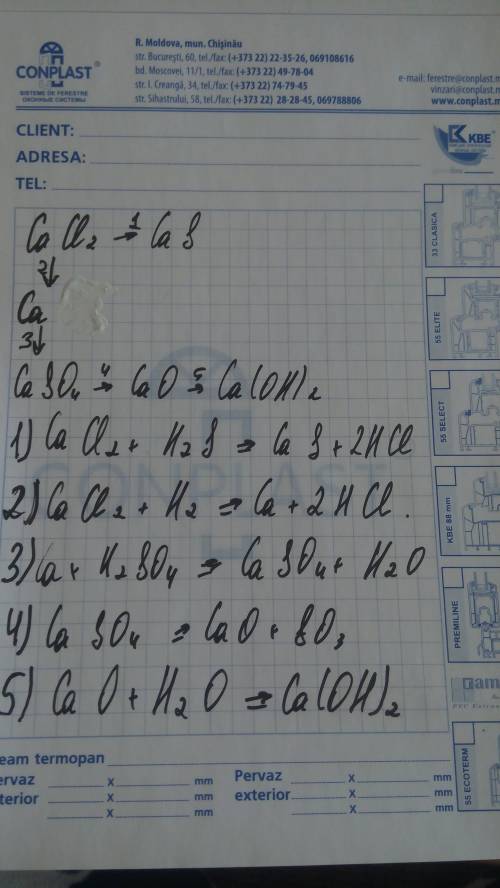 R. Moldova, mun. Chișinău
str. București, 60, tel./fax: (+373 22) 22-35-26, 069108616
bd. Moscovei, 11/1, tel./fax: (+373 22) 49-78-04
str. I. Creangă, 34, tel./fax: (+373 22) 74-79-45
str. Sihastrului, 58, tel./fax: (+373 22) 28-28-45, 069788806
CONPLAST
SISTEME DE FERESTRE
ОКОННЫЕ СИСТЕМЫ
e-mail: ferestre@conplast.m
vinzari@conplast.m
www.conplast.m
CLIENT:
ADRESA:
TEL:
KBE
CaCl2 →1 CaS
2↓
Ca
3↓
CaSO4 →4 CaO →5 Ca(OH)2
1) CaCl2 + H2S = CaS + 2HCl
2) CaCl2 + H2 = Ca + 2HCl.
3) Ca + H2SO4 = CaSO4 + H2O
4) CaSO4 = CaO + SO3
5) CaO + H2O = Ca(OH)2
CONPLAST
33 CLASICA
55 ELITE
55 SELECT
KBE 88 mm
PREMILINE
55 ECOTERM
eam termopan
ervaz x mm
terior x mm
x mm
Pervaz x mm
exterior x mm
x mm